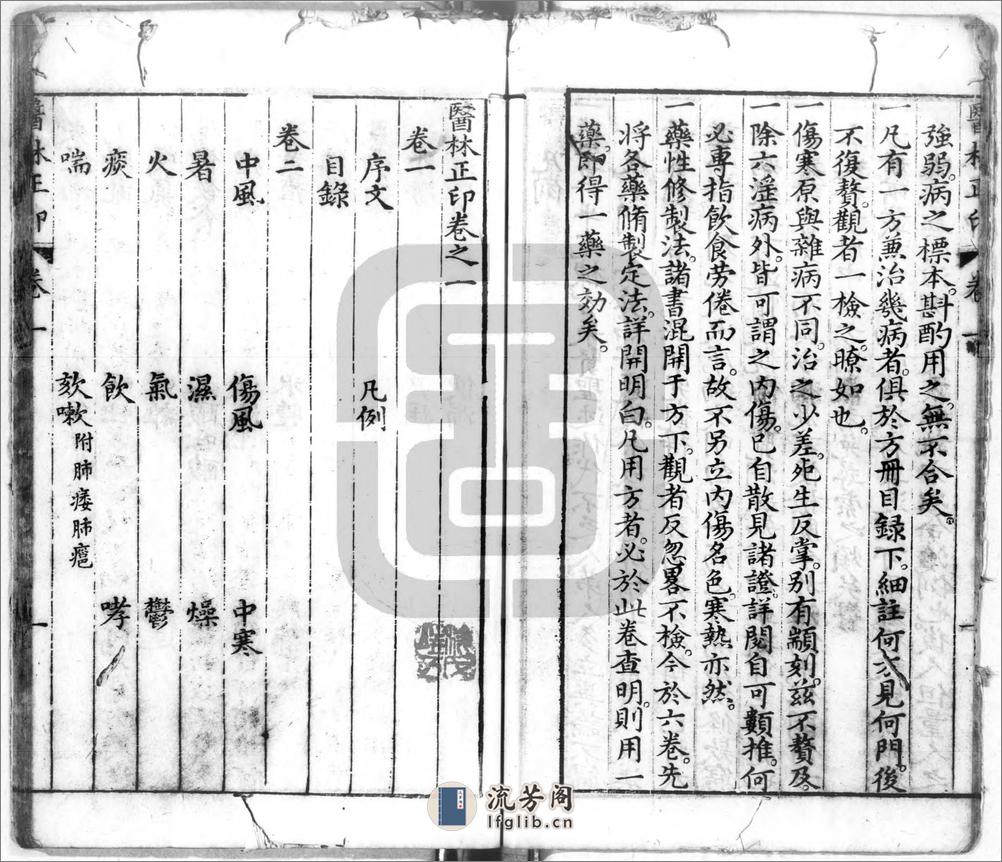 強弱。病之標本。斟酌用之。無不合矣。
一凡有一方兼治幾病者。俱於方冊目録下。細註何方見何門。後
不復贅。觀者一檢之。暸如也。
一傷寒原與雜病不同。治之少差。死生反掌。別有顓刻。茲不贅及。
一除六淫病外。皆可謂之内傷。已自散見諸證。詳閱自可類推。何
必專指飲食劳倦而言。故不另立内傷名色。寒熱亦然。
一藥性修製法。諸書混開于方下。觀者反忽畧不檢。今於六卷。先
將各藥脩製定法。詳開明白。凡用方者。必於此卷查明。則用一
藥。即得一藥之効矣。
醫林正印卷之一
卷一
序文 凡例
目錄
卷二
中風 傷風 中寒
暑 濕 燥
火 氣 鬱
痰 飲 哮
喘 欬嗽附肺痿肺癰
醫林正印 卷一 一
流芳阁
lfglib.cn